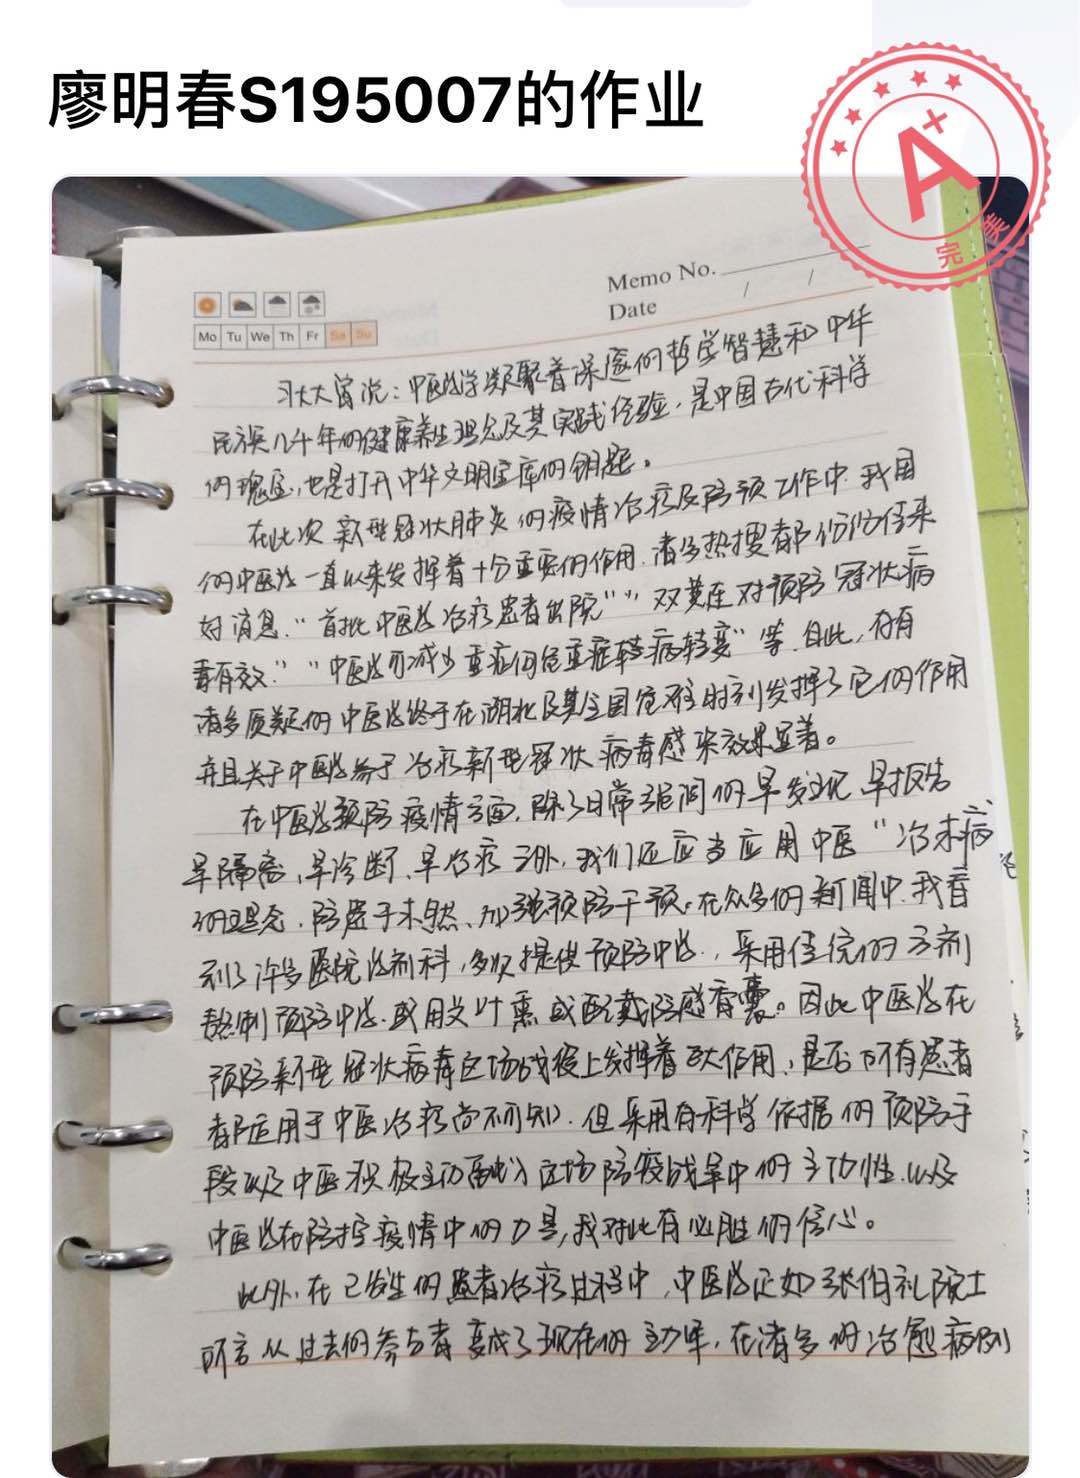 廖明春S195007的作业
A+
完美
Memo No.
Date / /
Mo Tu We Th Fr Sa Su
习大大曾说：中医药学凝聚着深邃的哲学智慧和中华
民族几千年的健康养生理念及其实践经验，是中国古代科学
的瑰宝，也是打开中华文明宝库的钥匙。
在此次新型冠状肺炎的疫情治疗及防预工作中，我国
的中医药一直以来发挥着十分重要的作用，诸多热搜都纷纷传来
好消息，“首批中医药治疗患者出院”“双黄连对预防冠状病
毒有效”“中医药可减少重症向危重症转病转变”等，自此，存有
诸多质疑的中医药终于在湖北及其全国危难时刻发挥了它的作用
并且关于中医药治疗新型冠状病毒感染效果显著。
在中医药预防疫情方面，除了日常强调的早发现、早报告
早隔离、早诊断、早治疗之外，我们还应当应用中医“治未病”
的理念，防患于未然、加强预防干预。在众多的新闻中，我看
到了许多医院药剂科，多次提供预防中药，采用传统的方剂
熬制预防中药，或用艾叶熏或配戴防感香囊。因此中医药在
预防新型冠状病毒这场战役上发挥着巨大作用，是否所有患者
都适用于中医治疗尚不可知，但采用有科学依据的预防手
段以及中医积极主动融入这场防疫战军中的主动性，以及
中医药在防控疫情中的力量，我对此有必胜的信心。
此外，在已发生的患者治疗过程中，中医药正如张伯礼院士
所言从过去的参与者变成了现在的主力军，在诸多的治愈病例